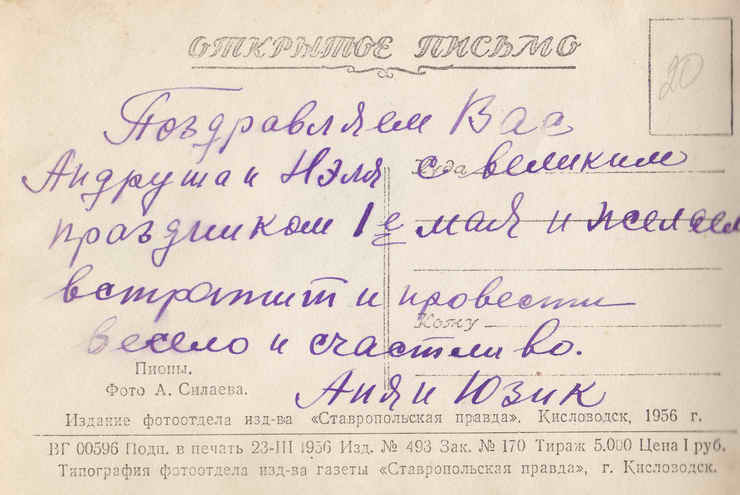 ОТКРЫТОЕ ПИСЬМО
20
Поздравляем Вас
Андруша и Нэля с великим
Куда
праздником 1е мая и желаем
встратит и провести
Кому
весело и счастливо.
Пионы.
Фото А. Силаева.
Аня и Юзик
Издание фотоотдела изд-ва «Ставропольская правда». Кисловодск, 1956 г.
ВГ 00596 Подп. в печать 23-III 1956 Изд. № 493 Зак. № 170 Тираж 5.000 Цена 1 руб.
Типография фотоотдела изд-ва газеты «Ставропольская правда», г. Кисловодск.